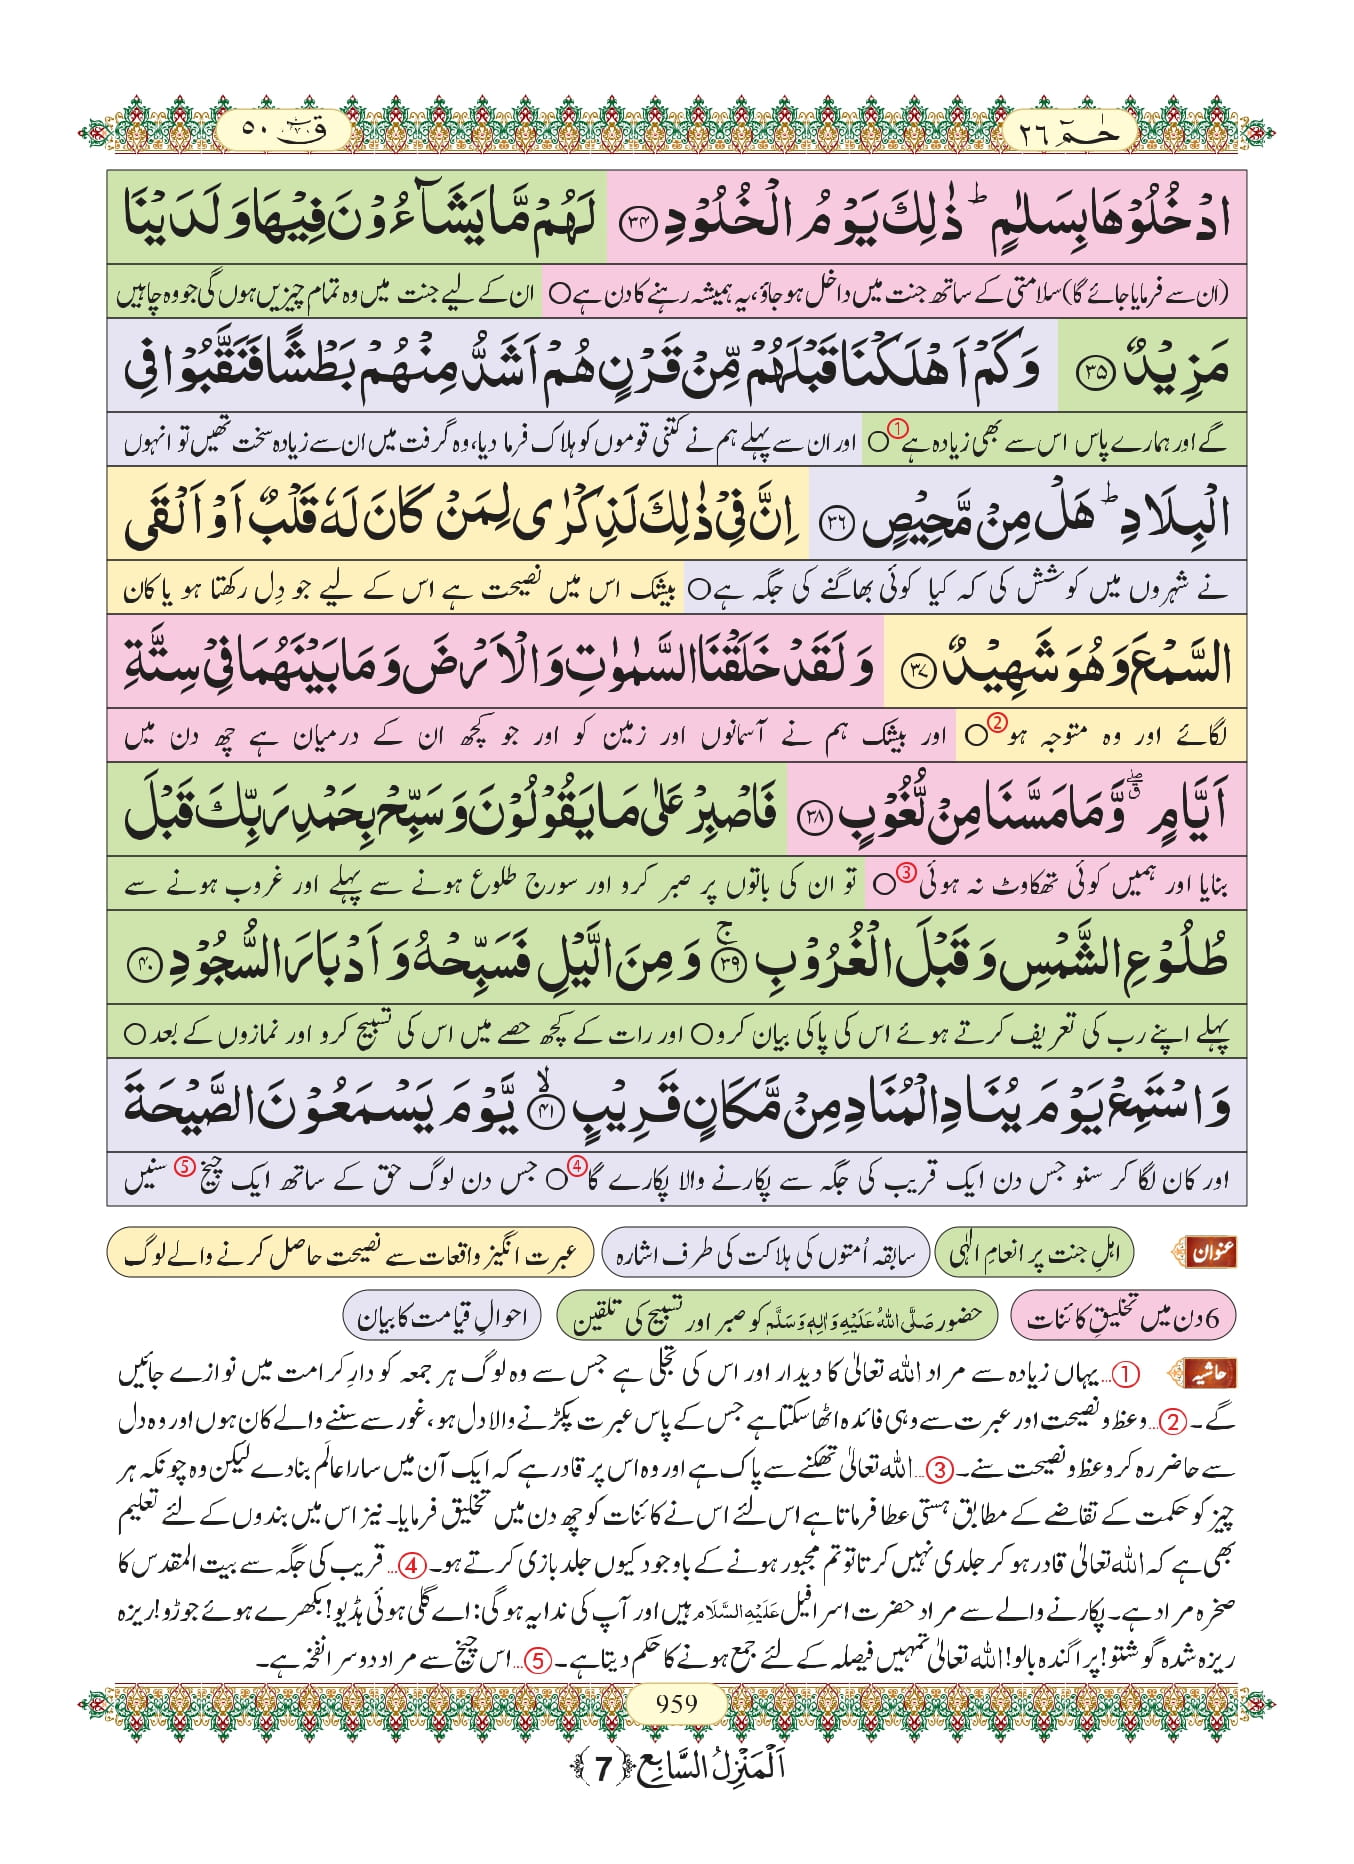 حٰمٓ ٢٦
قٓ ٥٠
ادْخُلُوْهَا بِسَلٰمٍ ؕ ذٰلِكَ یَوْمُ الْخُلُوْدِ ﴿۳۴﴾ لَهُمْ مَّا یَشَآءُوْنَ فِیْهَا وَ لَدَیْنَا
(ان سے فرمایا جائے گا) سلامتی کے ساتھ جنت میں داخل ہوجاؤ، یہ ہمیشہ رہنے کا دن ہے ○ ان کے لیے جنت میں وہ تمام چیزیں ہوں گی جو وہ چاہیں
مَزِیْدٌ ﴿۳۵﴾ وَ كَمْ اَهْلَكْنَا قَبْلَهُمْ مِّنْ قَرْنٍ هُمْ اَشَدُّ مِنْهُمْ بَطْشًا فَنَقَّبُوْا فِی
گے اور ہمارے پاس اس سے بھی زیادہ ہے① ○ اور ان سے پہلے ہم نے کتنی قوموں کو ہلاک فرما دیا، وہ گرفت میں ان سے زیادہ سخت تھیں تو انہوں
الْبِلَادِ ؕ هَلْ مِنْ مَّحِیْصٍ ﴿۳۶﴾ اِنَّ فِیْ ذٰلِكَ لَذِكْرٰى لِمَنْ كَانَ لَهٗ قَلْبٌ اَوْ اَلْقَى
نے شہروں میں کوشش کی کہ کیا کوئی بھاگنے کی جگہ ہے ○ بیشک اس میں نصیحت ہے اس کے لیے جو دِل رکھتا ہو یا کان
السَّمْعَ وَ هُوَ شَهِیْدٌ ﴿۳۷﴾ وَ لَقَدْ خَلَقْنَا السَّمٰوٰتِ وَ الْاَرْضَ وَ مَا بَیْنَهُمَا فِیْ سِتَّةِ
لگائے اور وہ متوجہ ہو② ○ اور بیشک ہم نے آسمانوں اور زمین کو اور جو کچھ ان کے درمیان ہے چھ دن میں
اَیَّامٍ ۖۗ وَّ مَا مَسَّنَا مِنْ لُّغُوْبٍ ﴿۳۸﴾ فَاصْبِرْ عَلٰى مَا یَقُوْلُوْنَ وَ سَبِّحْ بِحَمْدِ رَبِّكَ قَبْلَ
بنایا اور ہمیں کوئی تھکاوٹ نہ ہوئی③ ○ تو ان کی باتوں پر صبر کرو اور سورج طلوع ہونے سے پہلے اور غروب ہونے سے
طُلُوْعِ الشَّمْسِ وَ قَبْلَ الْغُرُوْبِ ۚ﴿۳۹﴾ وَ مِنَ الَّیْلِ فَسَبِّحْهُ وَ اَدْبَارَ السُّجُوْدِ ﴿۴۰﴾
پہلے اپنے رب کی تعریف کرتے ہوئے اس کی پاکی بیان کرو ○ اور رات کے کچھ حصے میں اس کی تسبیح کرو اور نمازوں کے بعد ○
وَ اسْتَمِعْ یَوْمَ یُنَادِ الْمُنَادِ مِنْ مَّكَانٍ قَرِیْبٍ ۙ﴿۴۱﴾ یَّوْمَ یَسْمَعُوْنَ الصَّیْحَةَ
اور کان لگا کر سنو جس دن ایک قریب کی جگہ سے پکارنے والا پکارے گا④ ○ جس دن لوگ حق کے ساتھ ایک چیخ⑤ سنیں
عنوان اہلِ جنت پر انعامِ الٰہی سابقہ اُمتوں کی ہلاکت کی طرف اشارہ عبرت انگیز واقعات سے نصیحت حاصل کرنے والے لوگ
6 دن میں تخلیقِ کائنات حضور صَلَّی اللہُ عَلَیْہِ وَاٰلِہٖ وَسَلَّم کو صبر اور تسبیح کی تلقین احوالِ قیامت کا بیان
حاشیہ ①…یہاں زیادہ سے مراد اللہ تعالیٰ کا دیدار اور اس کی تجلی ہے جس سے وہ لوگ ہر جمعہ کو دارِ کرامت میں نوازے جائیں
گے۔ ②…وعظ و نصیحت اور عبرت سے وہی فائدہ اٹھا سکتا ہے جس کے پاس عبرت پکڑنے والا دل ہو، غور سے سننے والے کان ہوں اور وہ دل
سے حاضر رہ کر وعظ و نصیحت سنے۔ ③…اللہ تعالیٰ تھکنے سے پاک ہے اور وہ اس پر قادر ہے کہ ایک آن میں سارا عالَم بنا دے لیکن وہ چونکہ ہر
چیز کو حکمت کے تقاضے کے مطابق ہستی عطا فرماتا ہے اس لئے اس نے کائنات کو چھ دن میں تخلیق فرمایا۔ نیز اس میں بندوں کے لئے تعلیم
بھی ہے کہ اللہ تعالیٰ قادر ہو کر جلدی نہیں کرتا تو تم مجبور ہونے کے باوجود کیوں جلد بازی کرتے ہو۔ ④…قریب کی جگہ سے بیت المقدس کا
صخرہ مراد ہے۔ پکارنے والے سے مراد حضرت اسرافیل عَلَیْہِ السَّلَام ہیں اور آپ کی ندا یہ ہوگی: اے گلی ہوئی ہڈیو! بکھرے ہوئے جوڑو! ریزہ
ریزہ شدہ گوشتو! پراگندہ بالو! اللہ تعالیٰ تمہیں فیصلہ کے لئے جمع ہونے کا حکم دیتا ہے۔ ⑤…اس چیخ سے مراد دوسرا نفخہ ہے۔
959
اَلْمَنْزِلُ السَّابِع ﴿7﴾